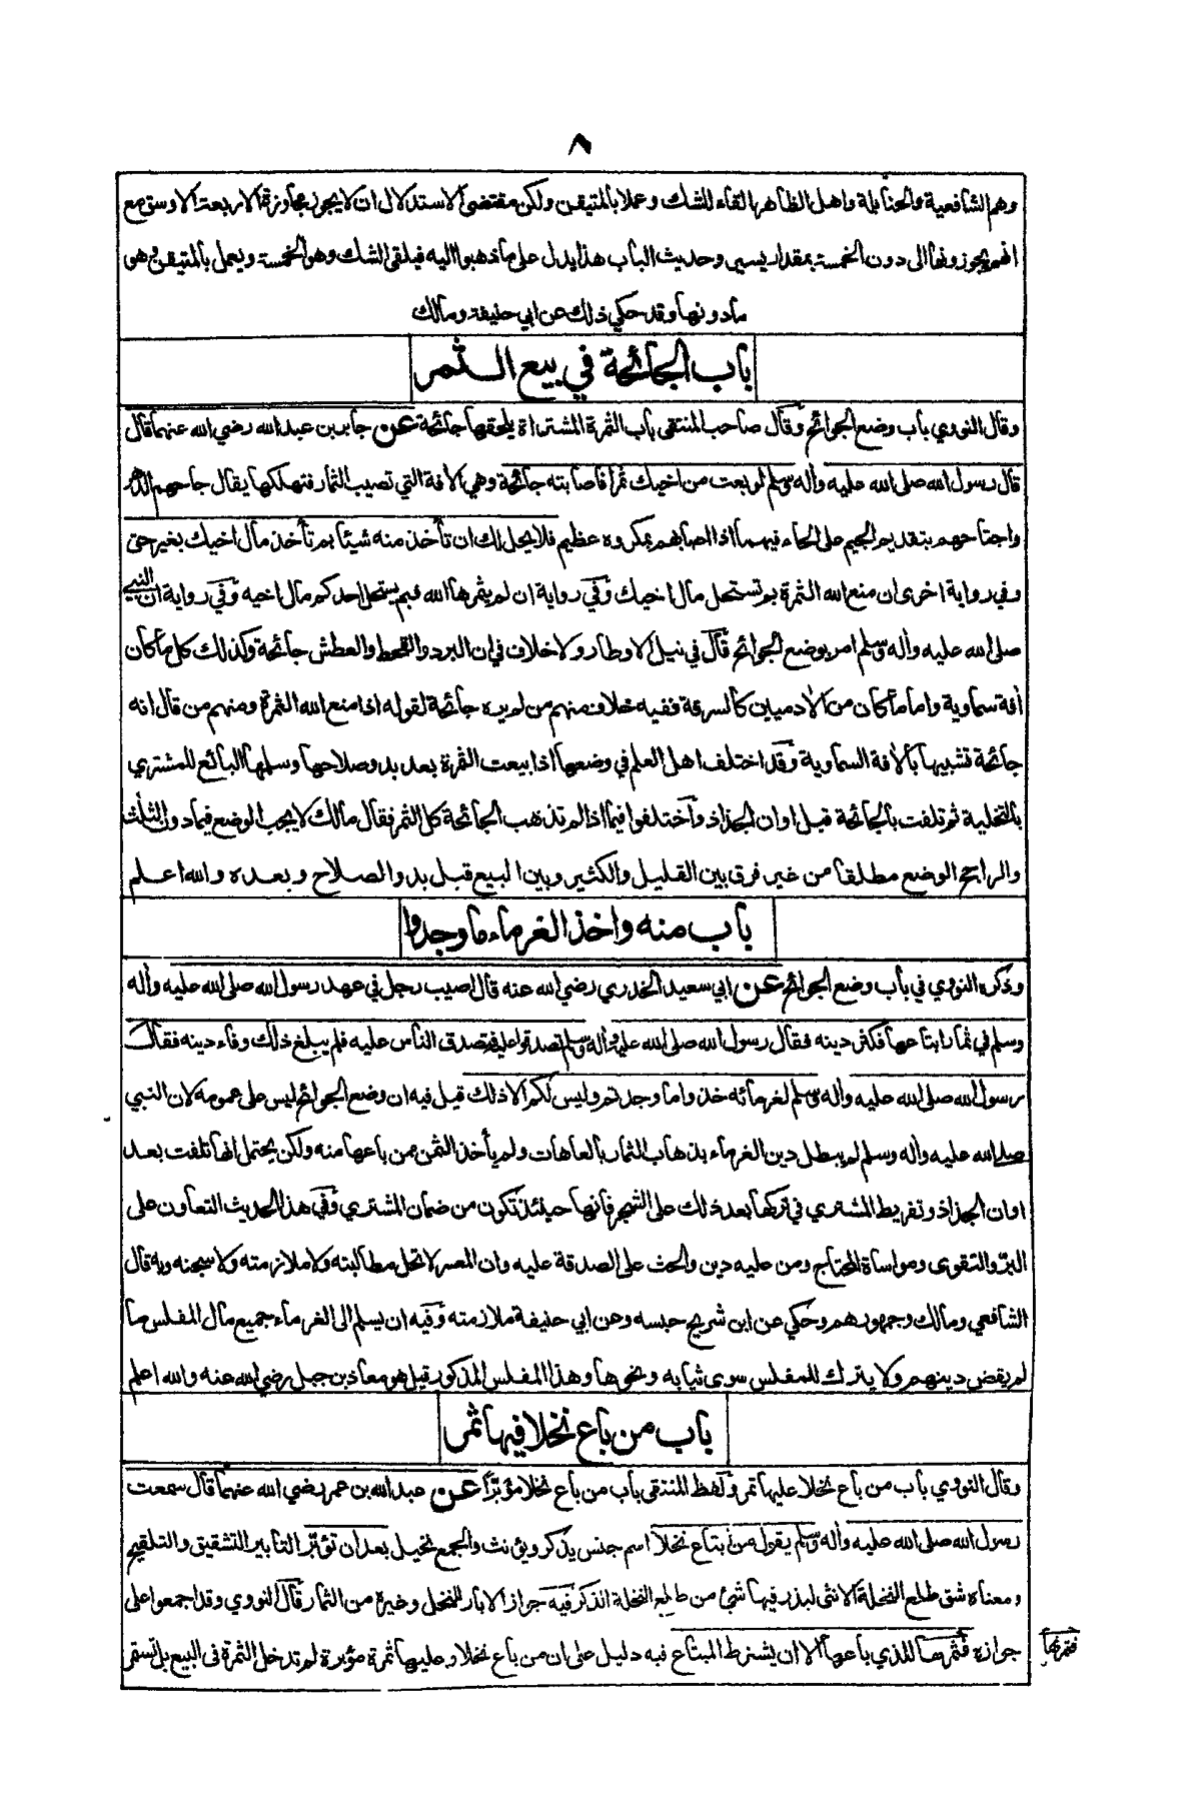 ٨
وهم الشافعية والحنابلة واهل الظاهر القاء للشك وعملا بالمتيقن ولكن مقتضى الاستدلال ان لا يجوز مجاوزة الاربعة الاوسق مع
انهم يجوزونها الى دون الخمسة بمقدار يسير وحديث الباب هذا يدل على ما ذهبوا اليه فيلقى الشك وهو الخمسة ويعمل بالمتيقن وهو
ما دونها وقد حكي ذلك عن ابي حنيفة ومالك
باب الجائحة في بيع الثمر
وقال النووي باب وضع الجوائح وقال صاحب المنتقى باب الثمرة المشتراة يلحقها جائحة عن جابر بن عبد الله رضي الله عنهما قال
قال رسول الله صلى الله عليه وأله وسلم لو بعت من اخيك ثمرا فاصابته جائحة وهي الأفة التي تصيب الثمار فتهلكها يقال جاحهم الدهر
واجتاحهم بتقديم الجيم على الحاء فيهما اذا اصابهم بمكروه عظيم فلا يحل لك ان تأخذ منه شيئا بم تأخذ مال اخيك بغير حق
وفي رواية اخرى ان منع الله الثمرة بم تستحل مال اخيك وفي رواية ان لم يثمرها الله فبم يستحل احدكم مال اخيه وفي رواية ان النبي
صلى الله عليه وأله وسلم امر بوضع الجوائح قال في نيل الاوطار ولا خلاف في ان البرد والقحط والعطش جائحة وكذلك كل ما كان
أفة سماوية واما ما كان من الأدميين كالسرقة ففيه خلاف منهم من لم يره جائحة لقوله اذا منع الله الثمرة ومنهم من قال انه
جائحة تشبيها بالأفة السماوية وقد اختلف اهل العلم في وضعها اذا بيعت الثمرة بعد بدو صلاحها وسلمها البائع للمشتري
بالتخلية ثم تلفت بالجائحة قبل اوان الجذاذ واختلفوا فيما اذا لم تذهب الجائحة كل الثمر فقال مالك لا يجب الوضع فيما دون الثلث
والراجح الوضع مطلقا من غير فرق بين القليل والكثير وبين البيع قبل بدو الصلاح وبعده والله اعلم
باب منه واخذ الغرماء ما وجدوا
وذكره النووي في باب وضع الجوائح عن ابي سعيد الخدري رضي الله عنه قال اصيب رجل في عهد رسول الله صلى الله عليه وأله
وسلم في ثمار ابتاعها فكثر دينه فقال رسول الله صلى الله عليه وأله وسلم تصدقوا عليه فتصدق الناس عليه فلم يبلغ ذلك وفاء دينه فقال
رسول الله صلى الله عليه وأله وسلم لغرمائه خذوا ما وجدتم وليس لكم الا ذلك قيل فيه ان وضع الجوائح ليس على عمومه لان النبي
صلى الله عليه وأله وسلم لم يبطل دين الغرماء بذهاب الثمار بالعاهات ولم يأخذ الثمن من باعها منه ولكن يحتمل انها تلفت بعد
اوان الجذاذ وتفريط المشتري في تركها بعد ذلك على الشجر فانها حينئذ تكون من ضمان المشتري وفي هذا الحديث التعاون على
البر والتقوى ومواساة المحتاج ومن عليه دين والحث على الصدقة عليه وان المعسر لا تحل مطالبته ولا ملازمته ولا سجنه وبه قال
الشافعي ومالك وجمهورهم وحكي عن ابن شريح حبسه وعن ابي حنيفة ملازمته وفيه ان يسلم الى الغرماء جميع مال المفلس ما
لم يقض دينهم ولا يترك للمفلس سوى ثيابه ونحوها وهذا المفلس المذكور قيل هو معاذ بن جبل رضي الله عنه والله اعلم
باب من باع نخلا فيها ثمر
وقال النووي باب من باع نخلا عليها تمر ولفظ المنتقى باب من باع نخلا مؤبرًا عن عبد الله بن عمر رضي الله عنهما قال سمعت
رسول الله صلى الله عليه وأله وسلم يقول من ابتاع نخلا اسم جنس يذكر ويؤنث والجمع نخيل بعد ان تؤبر التأبير التشقيق والتلقيح
ومعناه شق طلع النخلة الانثى ليذر فيها شئ من طلع النخلة الذكر فيه جواز الابار للنخل وغيره من الثمار قال النووي وقد اجمعوا على
جوازه فثمرها للذي باعها الا ان يشترط المبتاع فيه دليل على ان من باع نخلا وعليها ثمرة مؤبرة لم تدخل الثمرة في البيع بل تستمر
فثمرتها